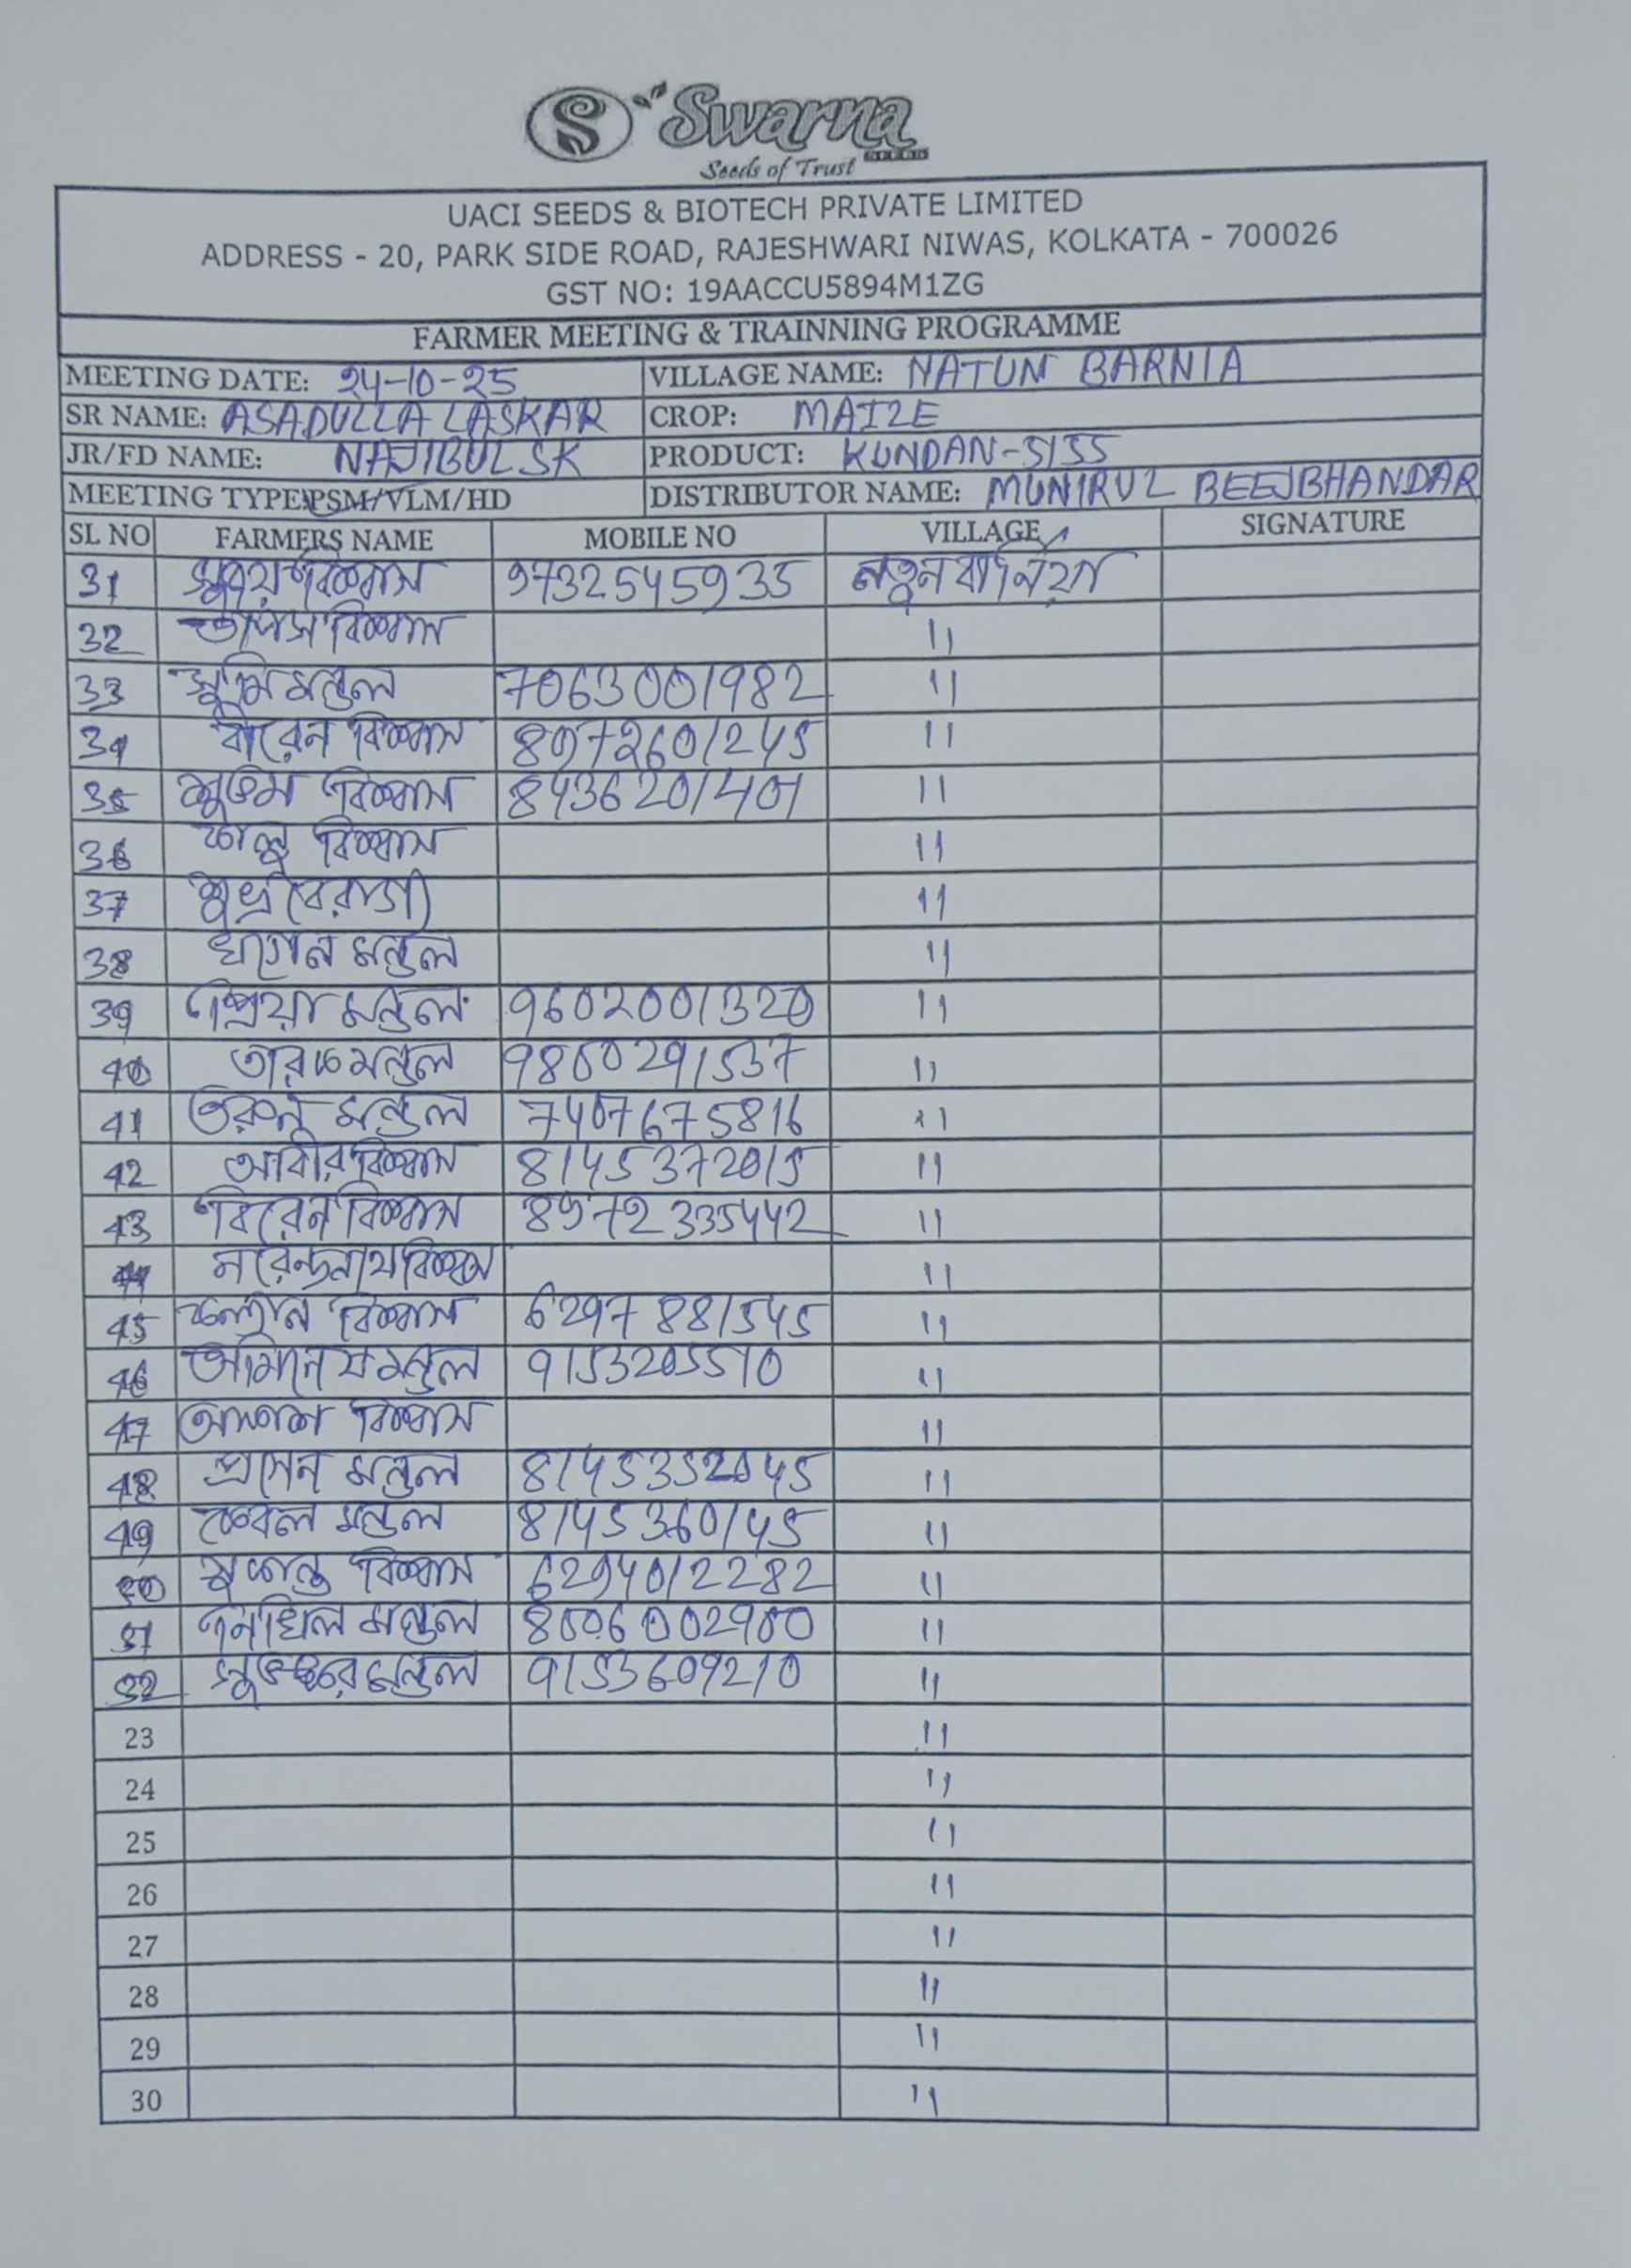 S Swarna
SEEDS
Seeds of Trust
UACI SEEDS & BIOTECH PRIVATE LIMITED
ADDRESS - 20, PARK SIDE ROAD, RAJESHWARI NIWAS, KOLKATA - 700026
GST NO: 19AACCU5894M1ZG
FARMER MEETING & TRAINNING PROGRAMME
MEETING DATE: 24-10-25 VILLAGE NAME: NATUN BARNIA
SR NAME: ASADULLA LASKAR CROP: MAIZE
JR/FD NAME: NAJIBUL SK PRODUCT: KUNDAN-5155
MEETING TYPE:PSM/VLM/HD DISTRIBUTOR NAME: MUNIRUL BEEJBHANDAR
SL NO FARMERS NAME MOBILE NO VILLAGE SIGNATURE
31 বিশ্বাস 9732545935 নতুন বার্নিয়া
32 তাপস বিশ্বাস "
33 মন্ডল 7063001982 "
34 বীরেন বিশ্বাস 8972601245 "
35 শুভম বিশ্বাস 8436201401 "
36 বিশ্বাস "
37 শুভ্র বৈরাগী "
38 খগেন মন্ডল "
39 প্রিয়া মন্ডল 9602001320 "
40 তারক মন্ডল 9860291537 "
41 তরুন মন্ডল 7407675816 "
42 আবীর বিশ্বাস 8145372015 "
43 বিরেন বিশ্বাস 8972335442 "
44 নরেন্দ্রনাথ বিশ্বাস "
45 বিশ্বাস 6297881545 "
46 মন্ডল 9153205510 "
47 আকাশ বিশ্বাস "
48 প্রসেন মন্ডল 8145352045 "
49 কেবল মন্ডল 8145360145 "
50 সুশান্ত বিশ্বাস 6294012282 "
51 নিখিল মন্ডল 8006002900 "
52 মন্ডল 9153609210 "
23 "
24 "
25 "
26 "
27 "
28 "
29 "
30 "